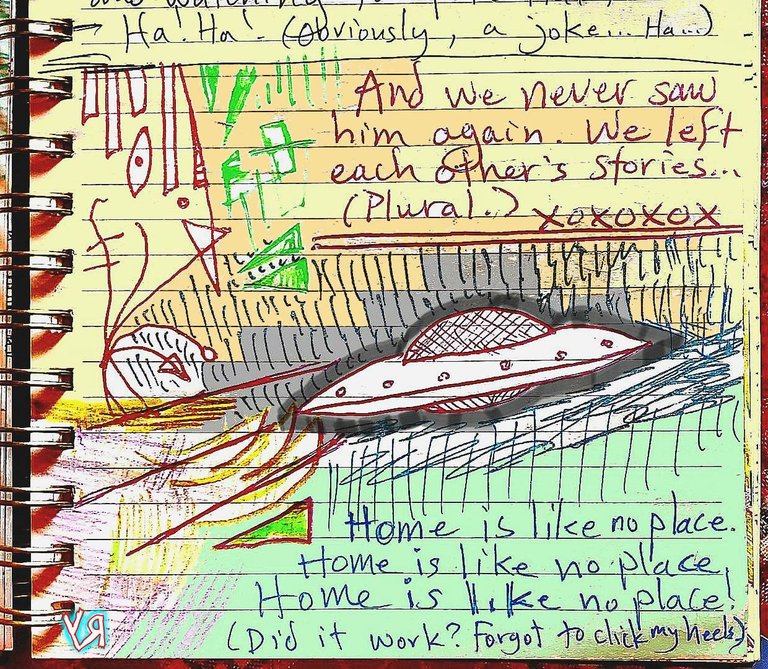 and watching
Ha! Ha! (Obviously, a joke... Ha...)
And we never saw
him again. We left
each other's stories...
(Plural.) xoxoxox
Home is like no place.
Home is like no place,
Home is like no place!
(Did it work? Forgot to click my heels)